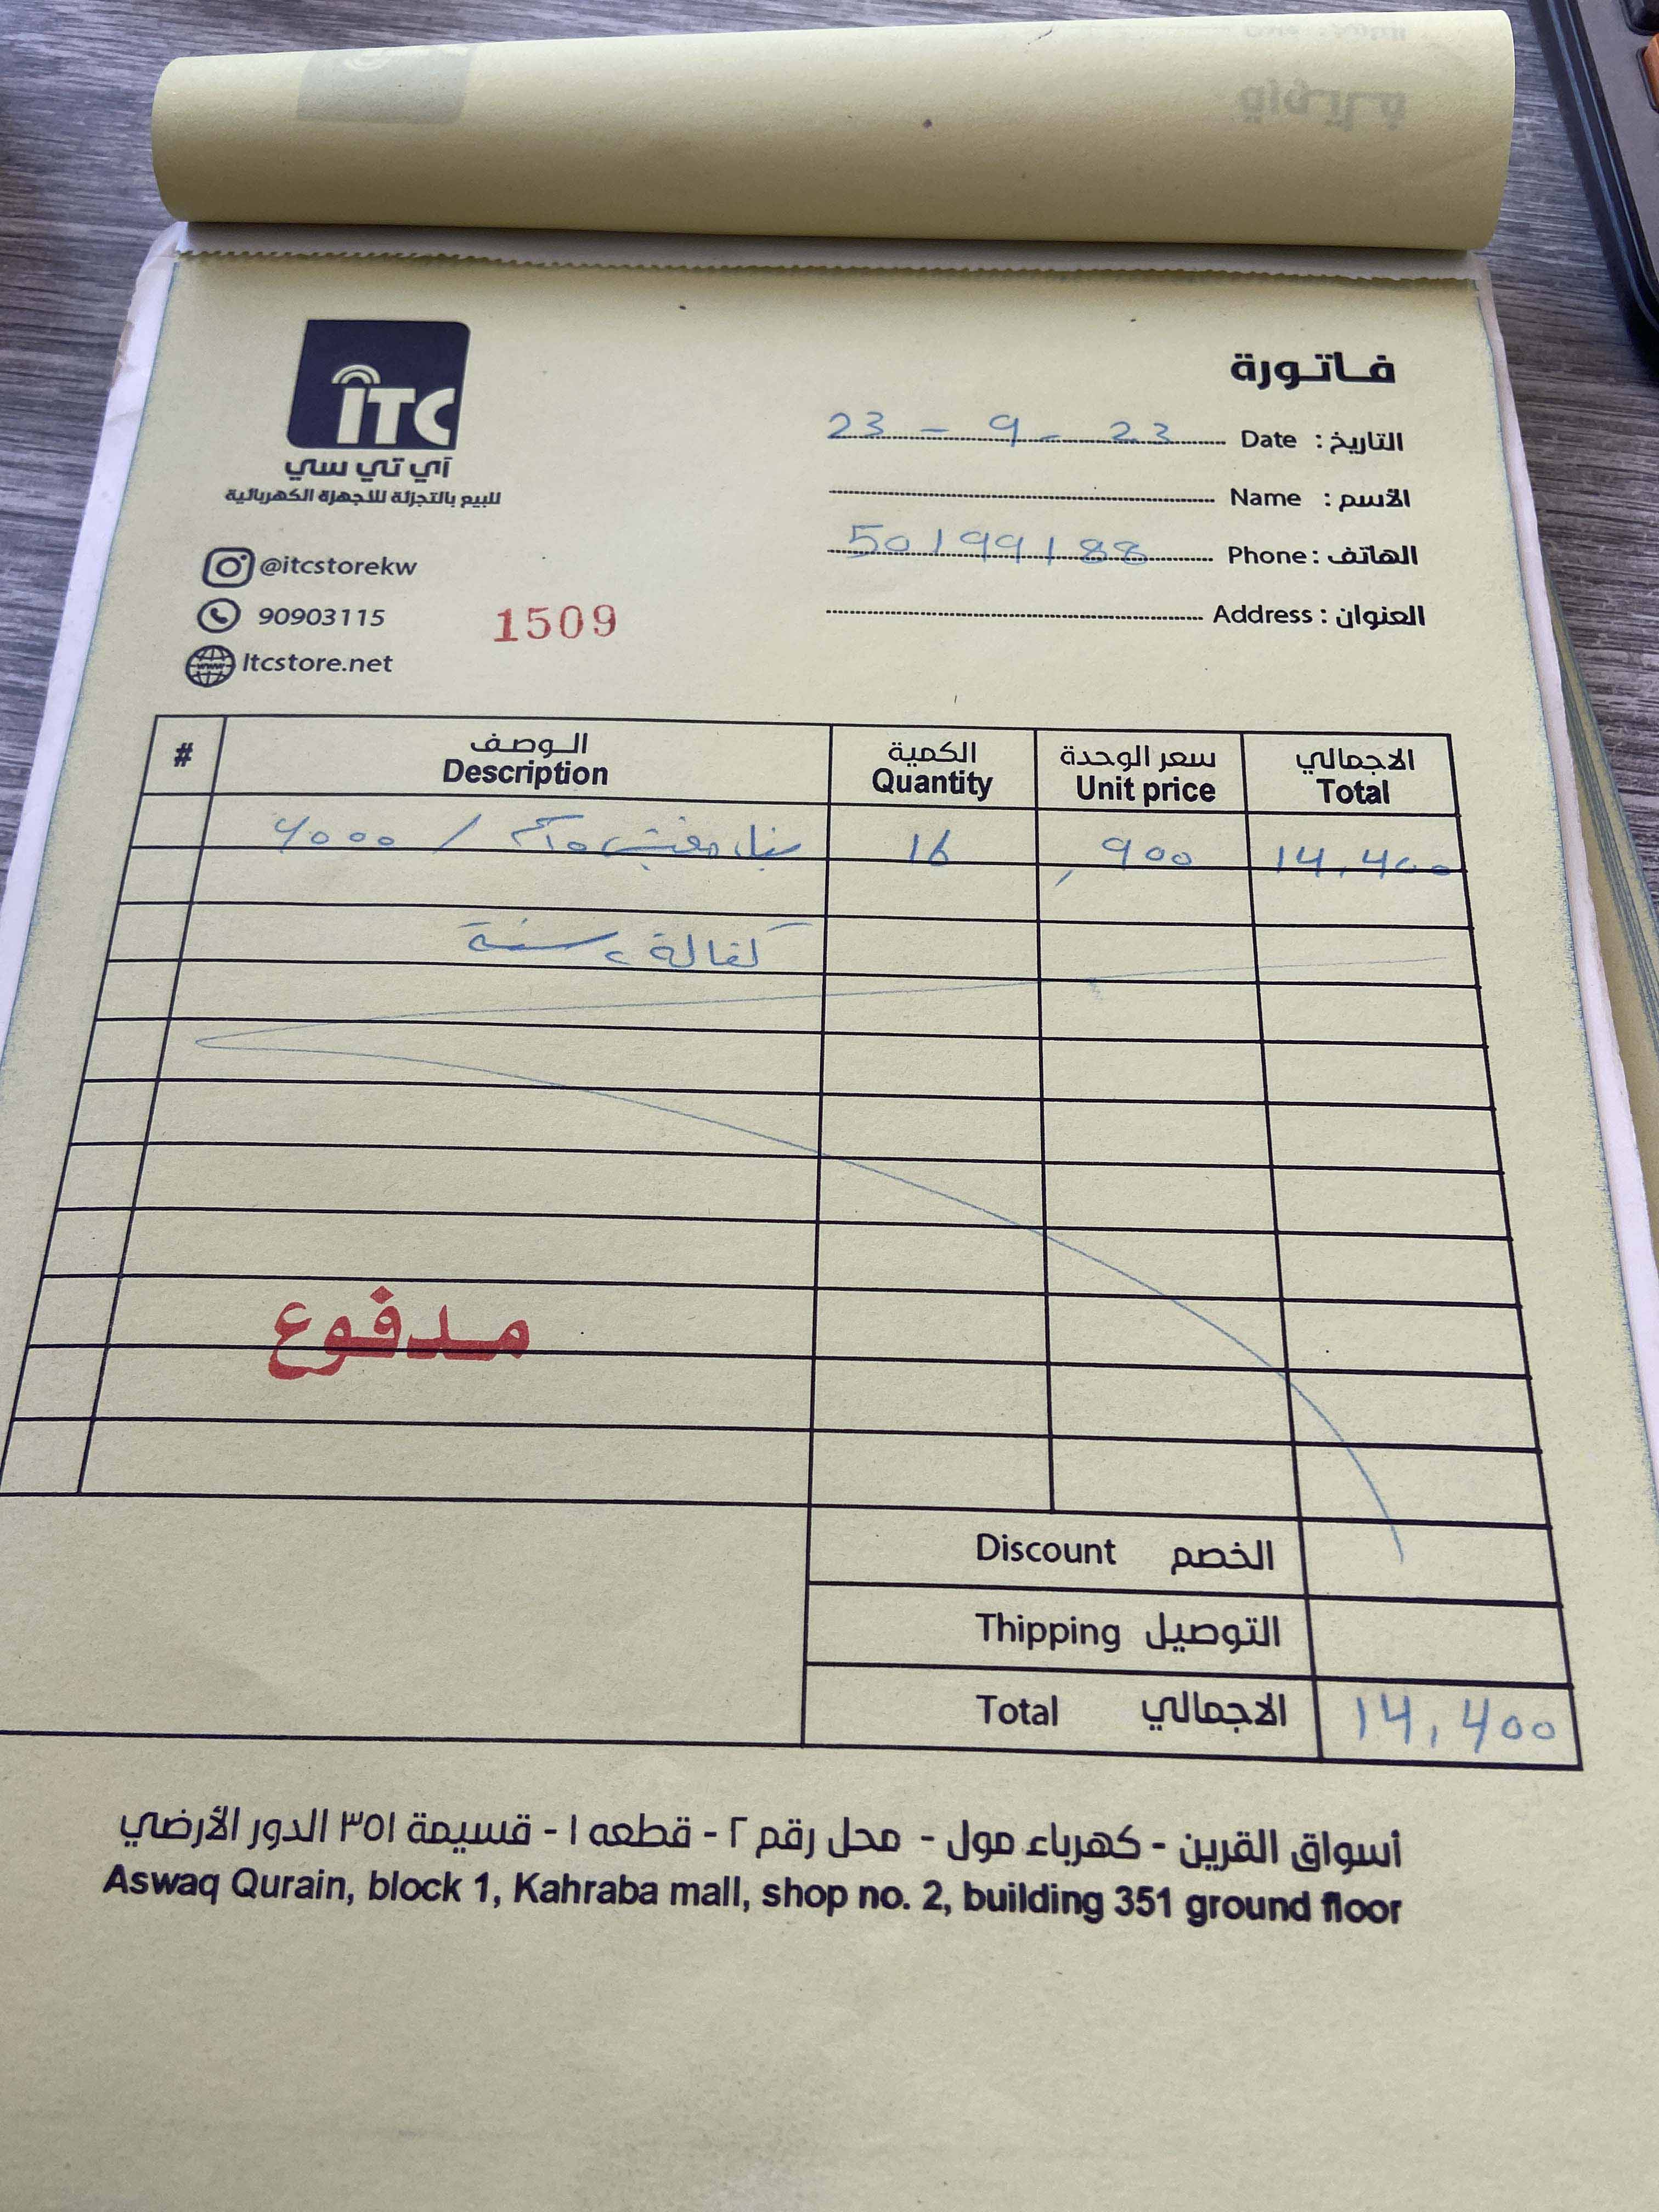 فاتورة
ITC
آي تي سي
للبيع بالتجزئة للأجهزة الكهربائية
@itcstorekw
90903115
Itcstore.net
1509
التاريخ : Date 23 - 9 - 23
الأسم : Name
الهاتف : Phone 50199188
العنوان : Address
# الوصف الكمية سعر الوحدة الاجمالي
Description Quantity Unit price Total
4000 / 16 ,900 14,400
كفالة 2 سنة
مدفوع
Discount الخصم
Thipping التوصيل
Total الاجمالي 14,400
أسواق القرين - كهرباء مول - محل رقم ٢ - قطعه ١ - قسيمة ٣٥١ الدور الأرضي
Aswaq Qurain, block 1, Kahraba mall, shop no. 2, building 351 ground floor